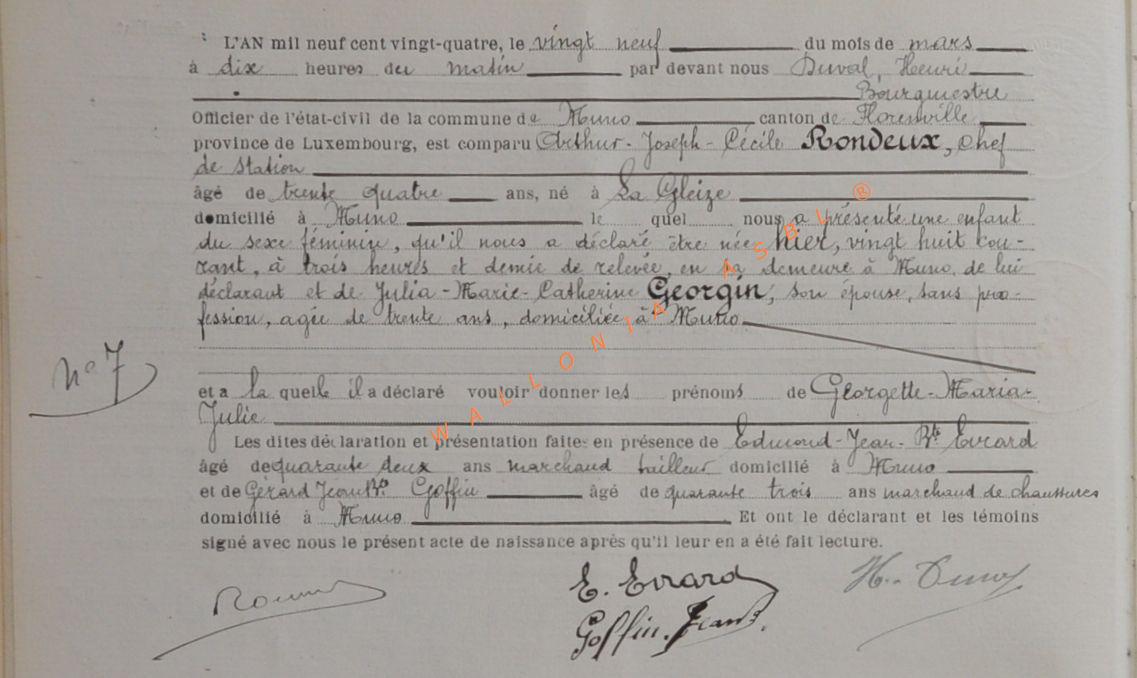 L'AN mil neuf cent vingt-quatre, le vingt neuf du mois de mars
à dix heures du matin par devant nous Duval, Henri
Bourgmestre
Officier de l'état-civil de la commune de Muno canton de Florenville
province de Luxembourg, est comparu Arthur-Joseph-Cécile Rondeux, chef
de station
âgé de trente quatre ans, né à La Gleize
domicilié à Muno le quel nous a présenté une enfant
du sexe féminin, qu'il nous a déclaré être née hier, vingt huit cou-
rant, à trois heures et demie de relevée, en sa demeure à Muno, de lui
déclarant et de Julia-Marie-Catherine Georgin, son épouse, sans pro-
fession, agée de trente ans, domiciliée à Muno
N° 7
et a la quelle il a déclaré vouloir donner les prénoms de Georgette-Maria-
Julie
Les dites déclaration et présentation faites en présence de Edmond-Jean-Bte Evrard
âgé de quarante deux ans marchand tailleur domicilié à Muno
et de Gérard Jean Bte Goffin âgé de quarante trois ans marchand de chaussures
domicilié à Muno Et ont le déclarant et les témoins
signé avec nous le présent acte de naissance après qu'il leur en a été fait lecture.
E. Evrard
H. Duval
Goffin. Jean B.
WALLONIA ASBL ®